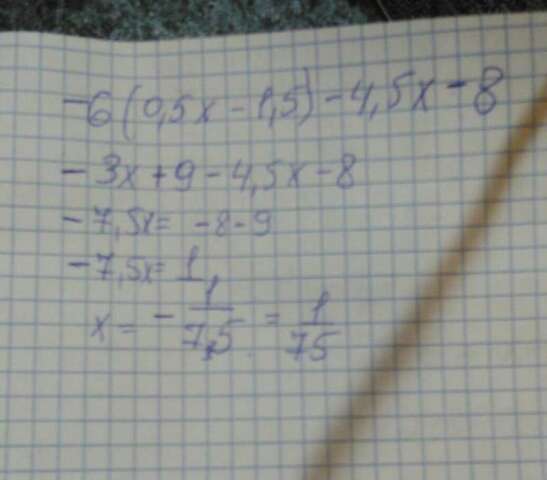 -6(0,5x-1,5)-4,5x-8
-3x+9-4,5x-8
-7,5x= -8-9
-7,5x= 1
x= -1/7,5 = 1/75